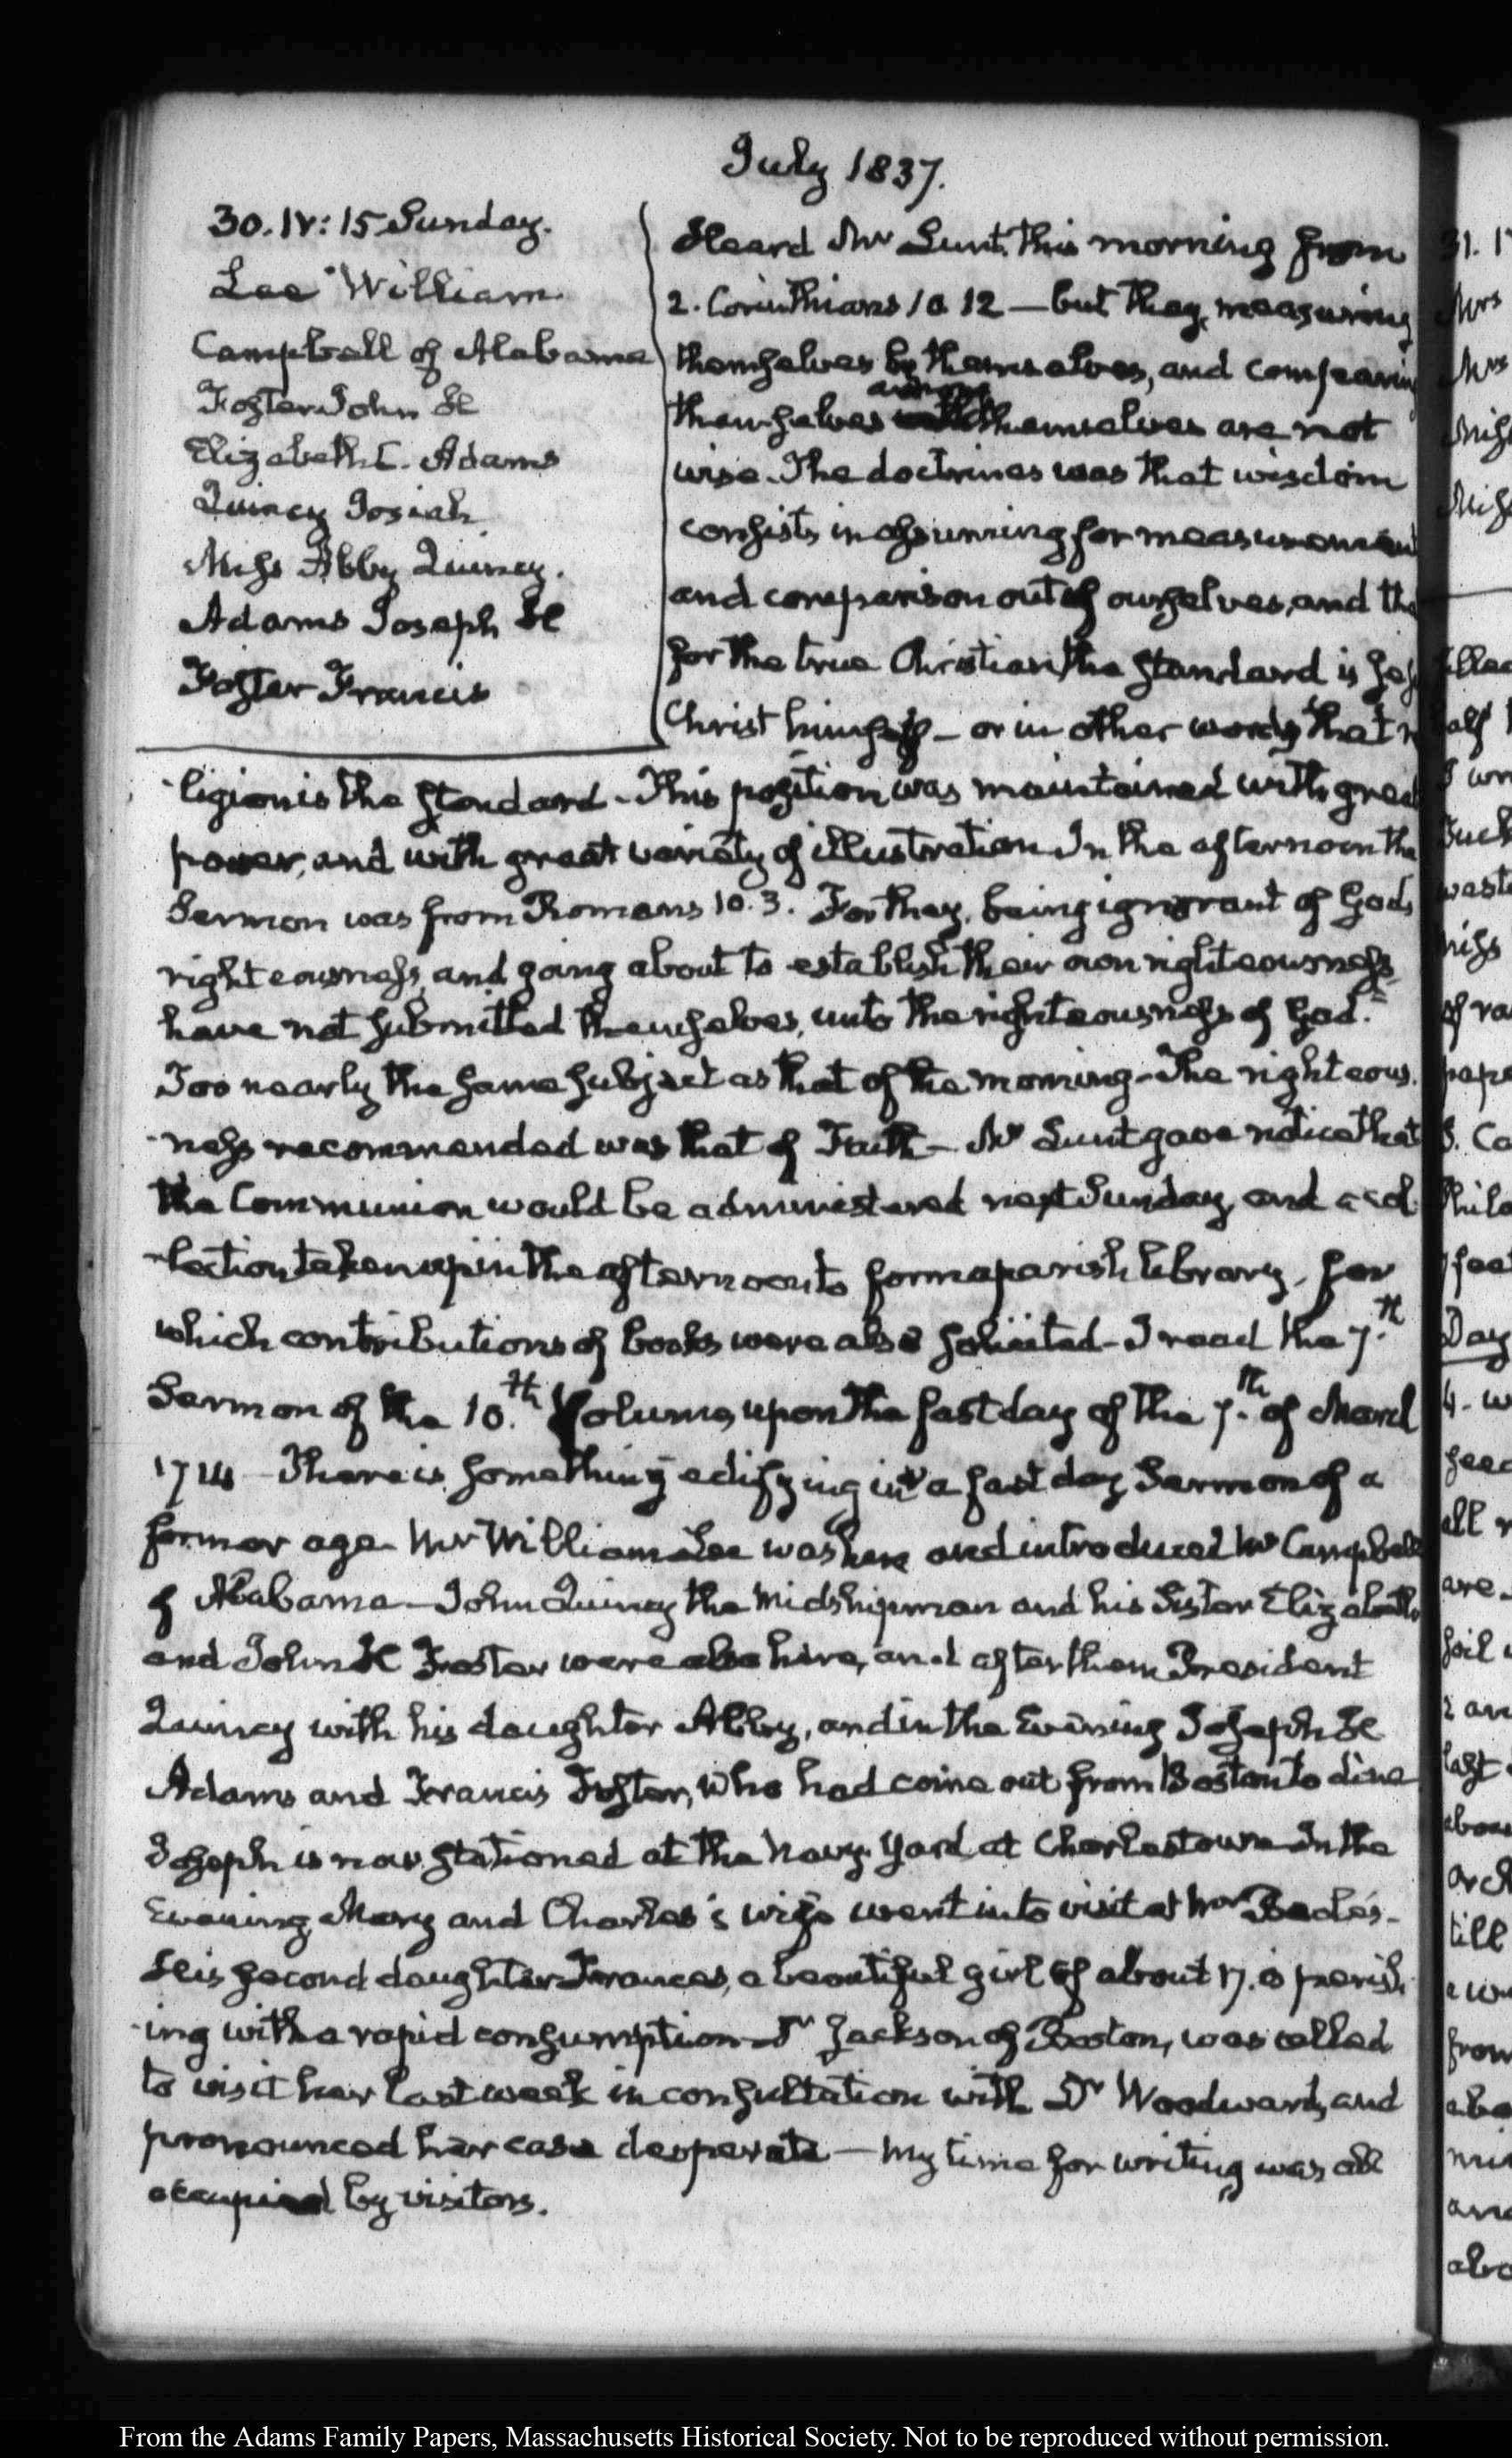 July 1837.
30. IV: 15 Sunday.
Lee William
Campbell of Alabama
Foster John H
Elizabeth C. Adams
Quincy Josiah
Miss Abby Quincy.
Adams Joseph H
Foster Francis
Heard Mr Lunt. this morning from
2. Corinthians 10 12 — but they, measuring
themselves by themselves, and comparing
among
themselves themselves are not
wise. The doctrines was that wisdom
consists in assuming for measurement
and comparison out of ourselves, and tha
for the true Christian, the standard is Jes
Christ himself — or in other words that r
ligion is the standard - This position was maintained with great
power, and with great variety of illustration In the afternoon the
Sermon was from Romans 10. 3. For they, being ignorant of Gods
righteousness, and going about to establish their own righteousness
have not submitted themselves, unto the righteousness of God."
Too nearly the same subject as that of the morning - The righteous.
-ness recommended was that of Faith — Mr Lunt gave notice that
the Communion would be administered next Sunday, and a col
-lection taken up in the afternoon to form a parish library, for
which contributions of books were also solicited - I read the 7.th
Sermon of the 10.th Volume, upon the fast day of the 7.th of March
1714 - There is something edifying in a fast day Sermon of a
former age. Mr William Lee was here and introduced Mr Campbell
of Alabama — John Quincy the Midshipman and his Sister Elizabeth
and John H Foster were also here, and after them President
Quincy with his daughter Abby, and in the Evening Joseph H
Adams and Francis Foster, who had come out from Boston to dine
Joseph is now stationed at the Navy Yard at Charlestown - In the
Evening Mary and Charles's wife went in to visit at Mr Beale's -
His second daughter Frances, a beautiful girl of about 17. is perish
-ing with a rapid consumption - Dr Jackson of Boston, was called
to visit her last week in consultation with Dr Woodward, and
pronounced her case desperate — My time for writing was all
occupied by visitors.
31. 1
Mrs
Mrs
Miss
Miss
of ra
Day
4. w
all
are
till
from
and
From the Adams Family Papers, Massachusetts Historical Society. Not to be reproduced without permission.